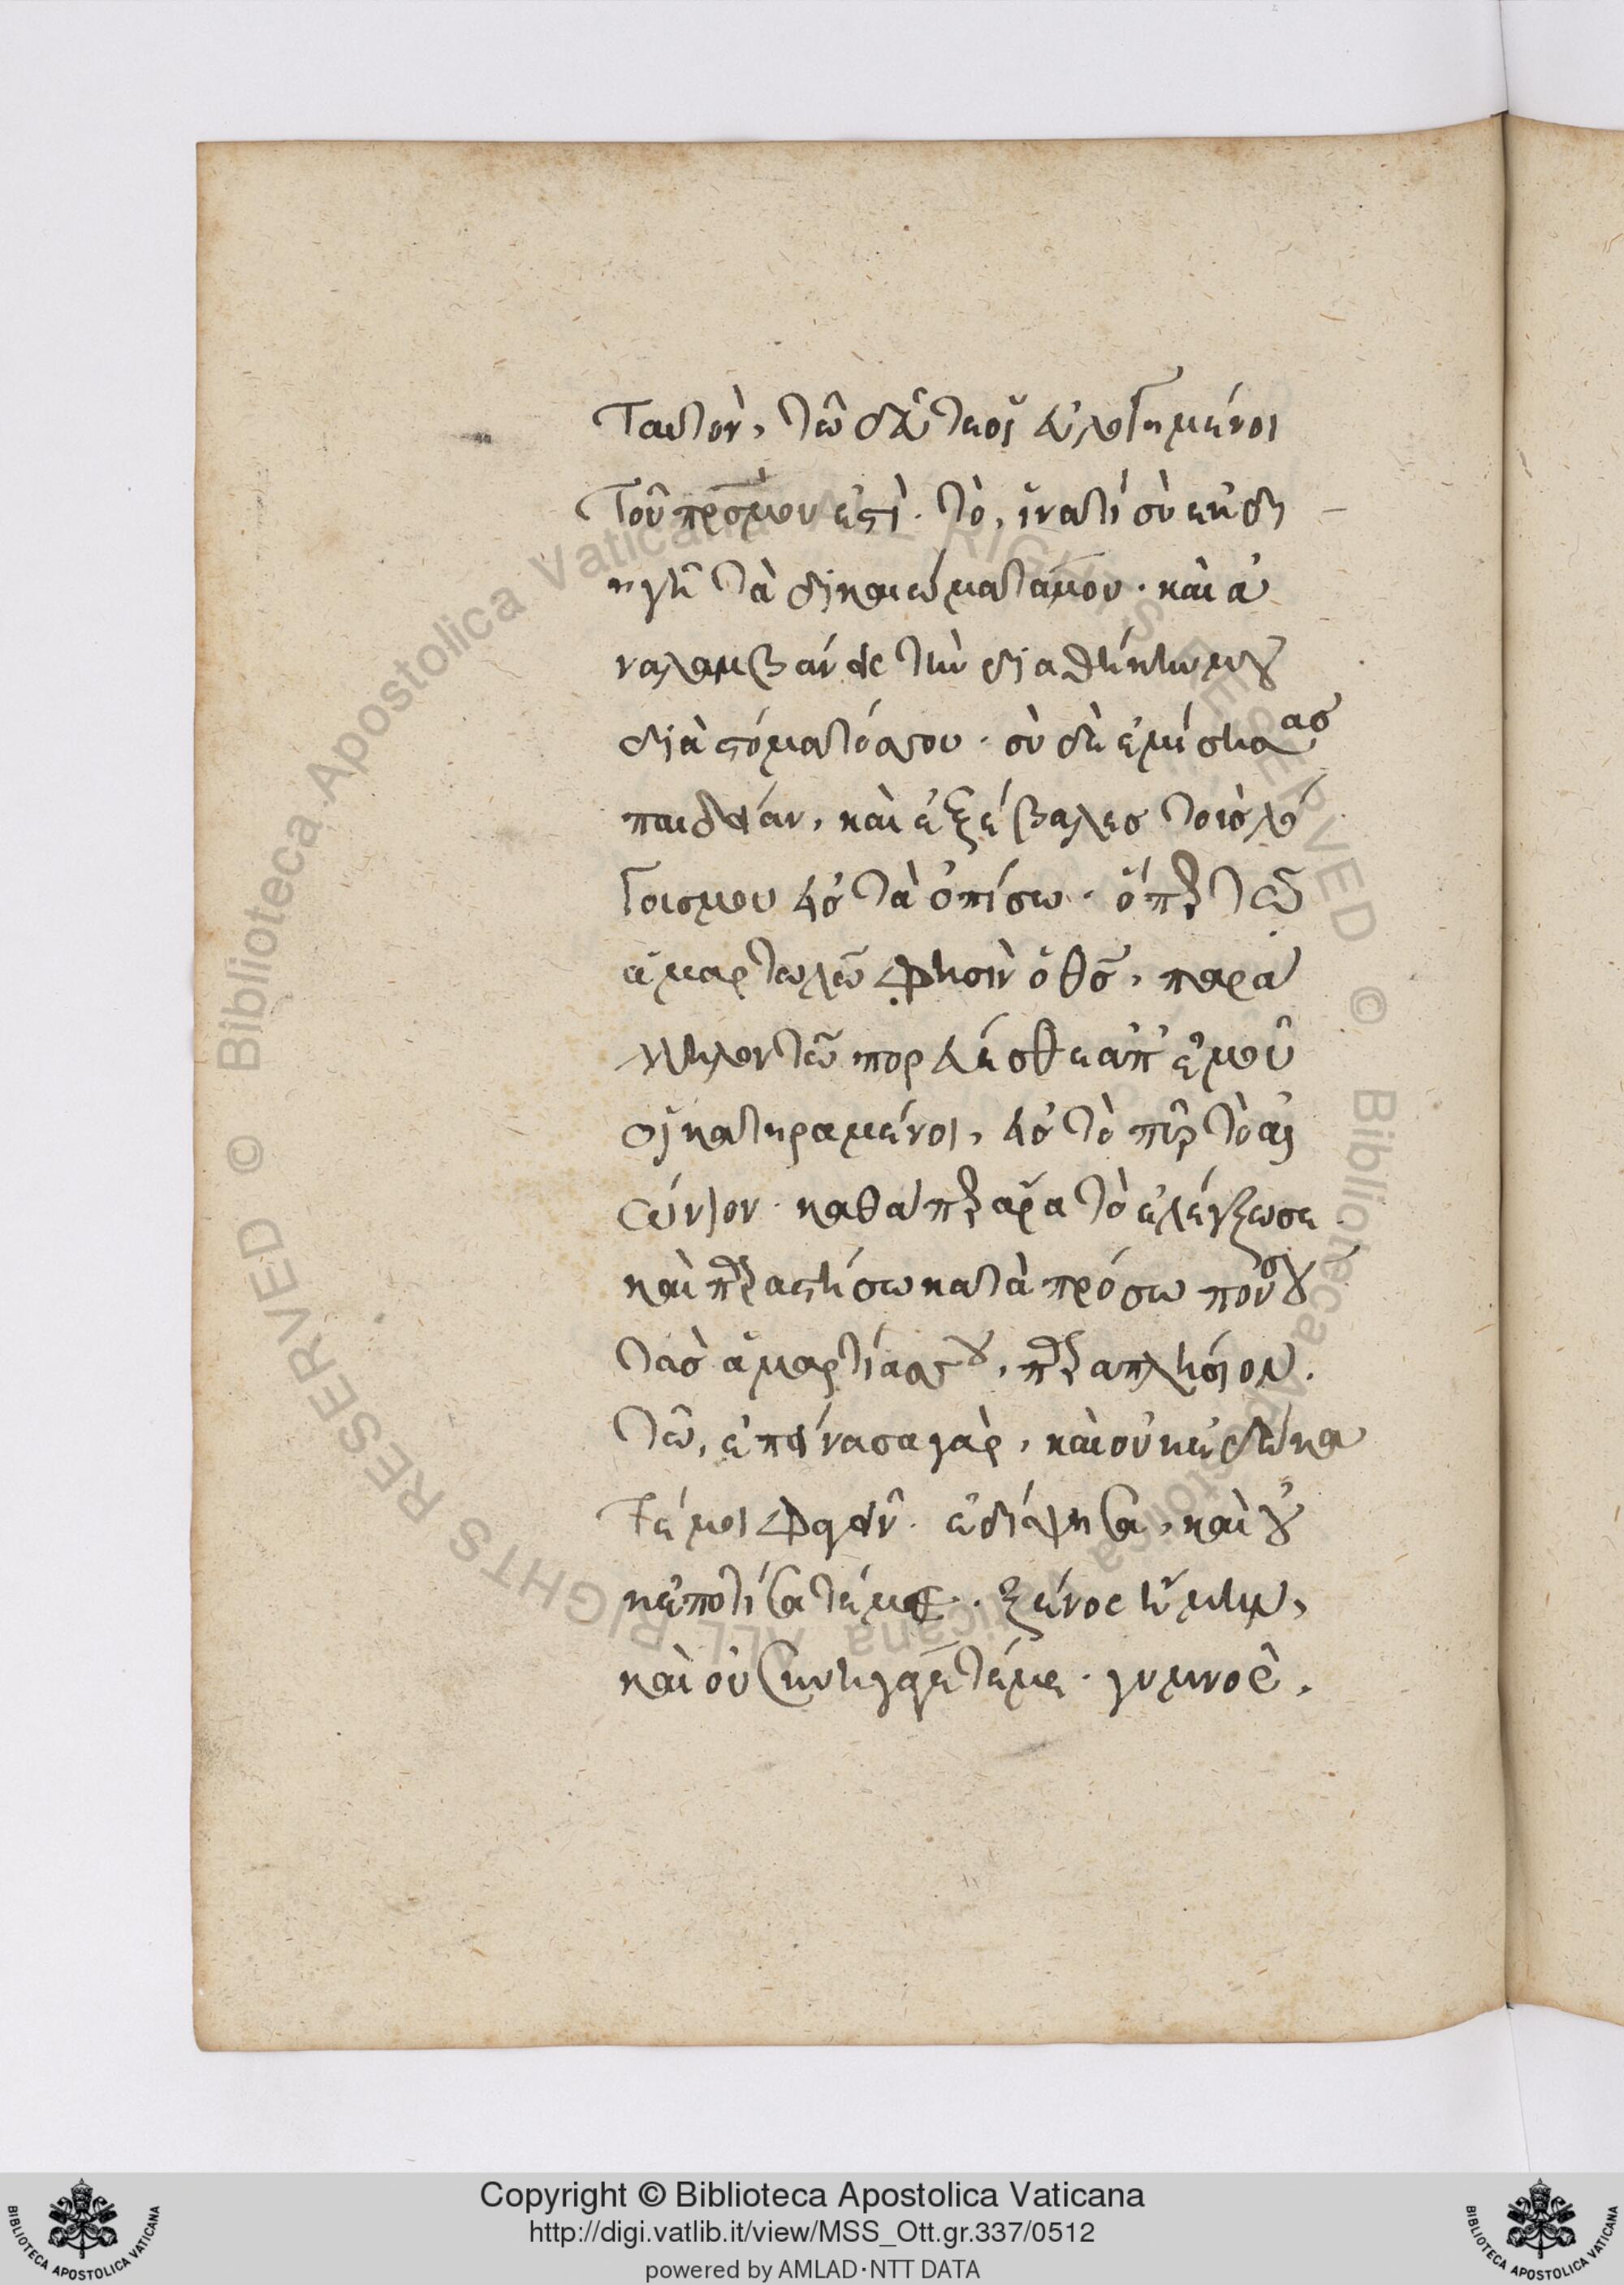 ταυτὸν, τῶ δεῦτε οἱ εὐλογημένοι
τοῦ πρσ μου ἐστὶ. τὸ, ἱνατί σὺ ἐκδι
ηγῆ τὰ δικαιώματά μου. καὶ ἀ
ναλαμβάνεις τὴν διαθήκην μου
διὰ στόματός σου. σὺ δὲ ἐμίσησας
παιδείαν, καὶ ἐξέβαλες τοὺς λό
γους μου εἰς τὰ ὀπίσω. ὅπερ τῶ
ἁμαρτωλῶ φησὶν ὁ θσ, παρά
λληλον τῶ πορεύεσθε ἀπ' ἐμοῦ
οἱ κατηραμένοι, εἰς τὸ πῦρ τὸ αἰ
ώνιον. καθάπερ ἄρα τὸ ἐλέγξω σε
καὶ παραστήσω κατὰ πρόσωπόν σου
τὰς ἁμαρτίας σου, παραπλήσιον.
τῶ, ἐπείνασα γὰρ, καὶ οὐκ ἐδώκα
τέ μοι φαγεῖν. ἐδίψησα, καὶ οὐ
κ ἐποτίσατέ με. ξένος ἤμην,
καὶ οὐ συνηγάγετέ με. γυμνὸς,
Copyright © Biblioteca Apostolica Vaticana
http://digi.vatlib.it/view/MSS_Ott.gr.337/0512
powered by AMLAD·NTT DATA